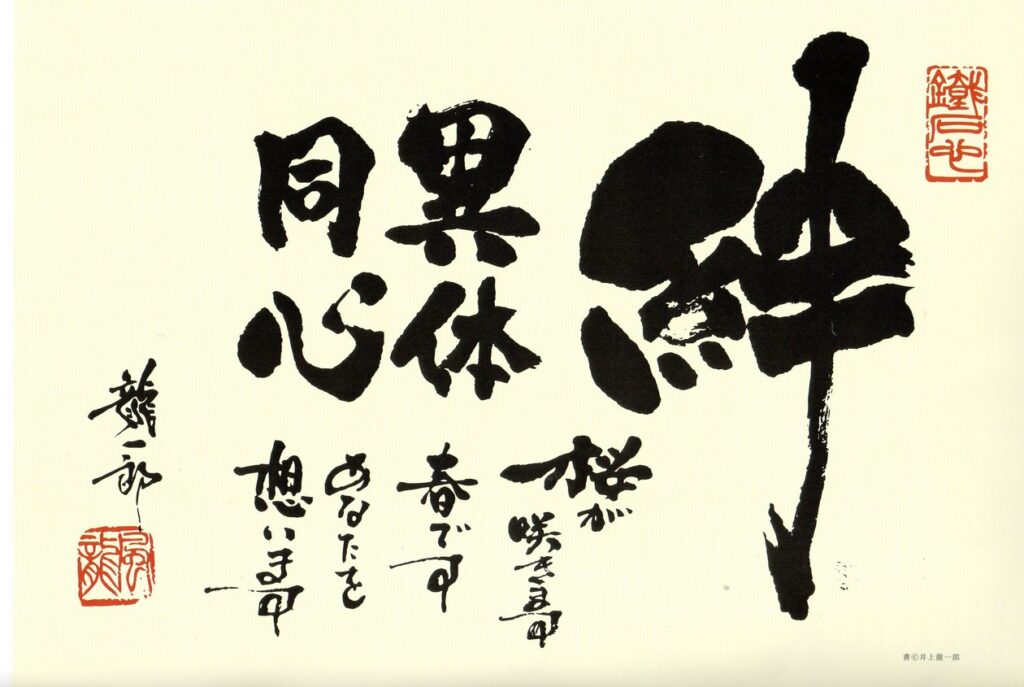 絆
異体
同心
桜が
咲きます
春です
あなたを
想います
龍一郎
鐵石心
風龍
書Ⓒ井上龍一郎